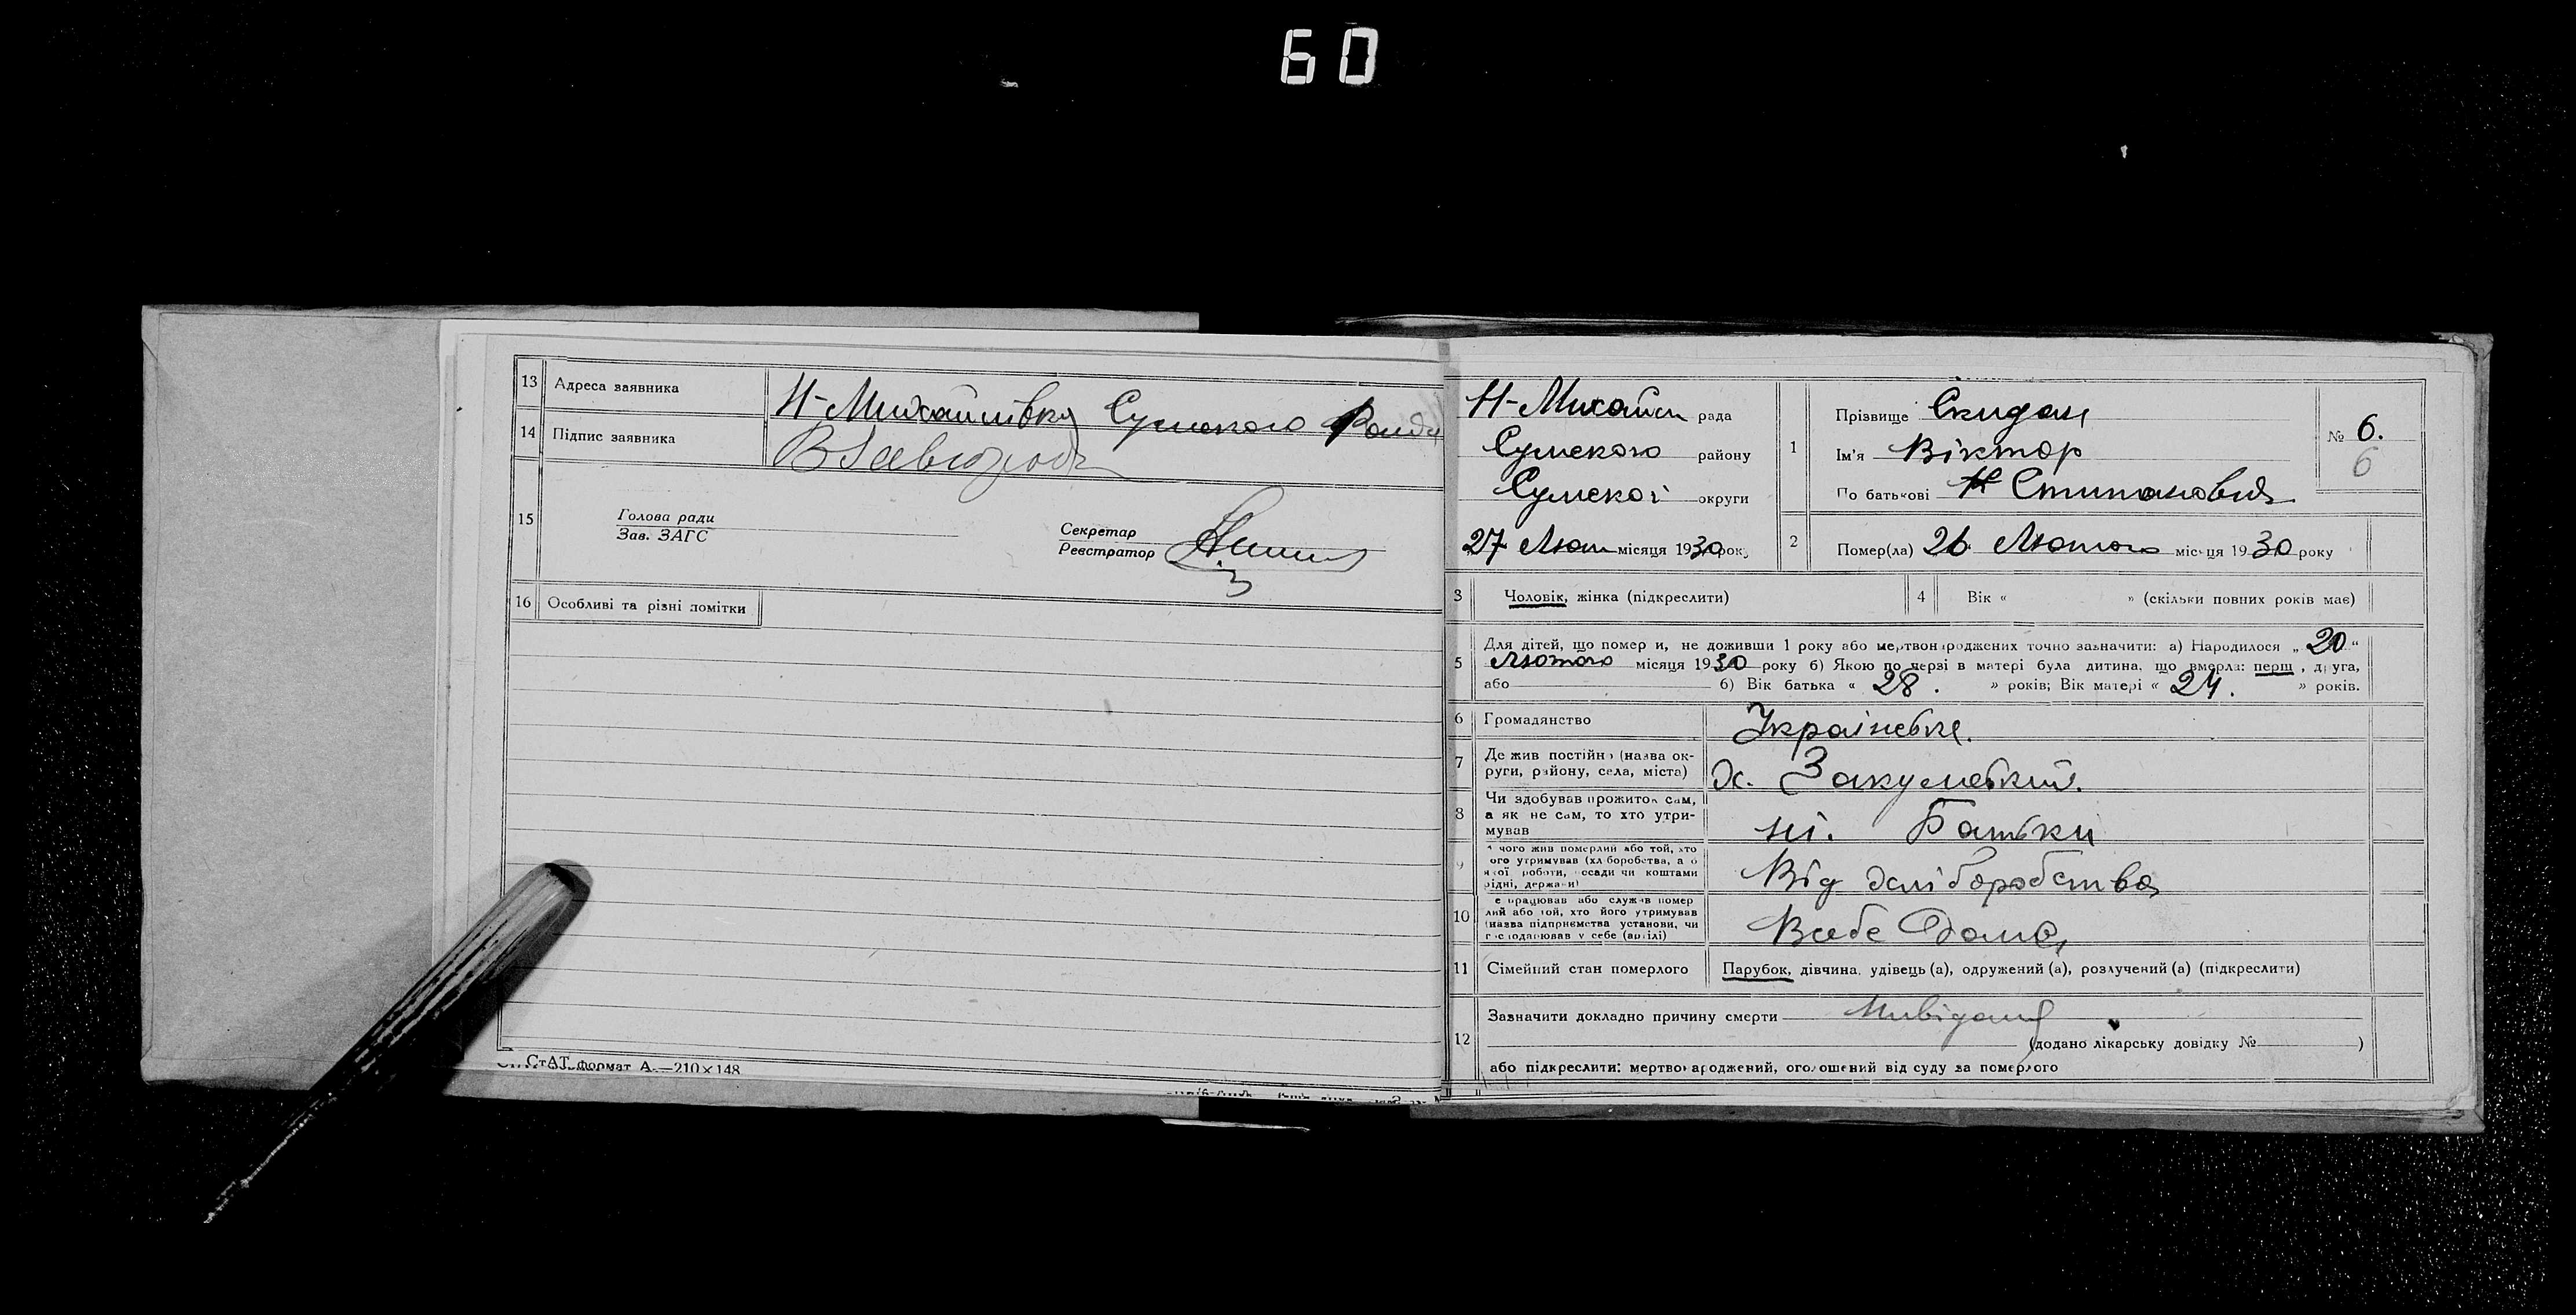 60
13 Адреса заявника Н-Михайлівка Сумского Району
14 Підпис заявника
15 Голова ради
Зав. ЗАГС
Секретар
Реєстратор
16 Особливі та різні помітки
СтАТ формат А.—210×148
Н-Михайл рада
Сумского району
Сумскої округи
27 Лют місяця 1930 року
1 Прізвище Скидан
Ім'я Віктор
По батькові Стипанович
№ 6.
6
2 Помер(ла) 26 Лютого місяця 1930 року
3 Чоловік, жінка (підкреслити)
4 Вік « » (скільки повних років має)
5 Для дітей, що померли, не доживши 1 року або мертвонароджених точно зазначити: а) Народилося „20“
Лютого місяця 1930 року б) Якою по черзі в матері була дитина, що вмерла: перш , друга,
або б) Вік батька « 28. » років; Вік матері « 24. » років.
6 Громадянство Українське.
7 Де жив постійно (назва ок-
руги, району, села, міста) х. Закумський.
8 Чи здобував прожиток сам,
а як не сам, то хто утри-
мував ні. Батьки
9 з чого жив померлий або той, хто
його утримував (хліборобства, або
якої роботи, посади чи коштами
рідні, держави) Від хліборобства
10 Де працював або служив помер
лий або той, хто його утримував
(назва підприємства установи, чи
господарював у себе (артілі) Всебе Дома,
11 Сімейний стан померлого Парубок, дівчина, удівець (а), одружений (а), розлучений (а) (підкреслити)
12 Зазначити докладно причину смерти
(додано лікарську довідку № )
або підкреслити: мертвонароджений, оголошений від суду за померлого